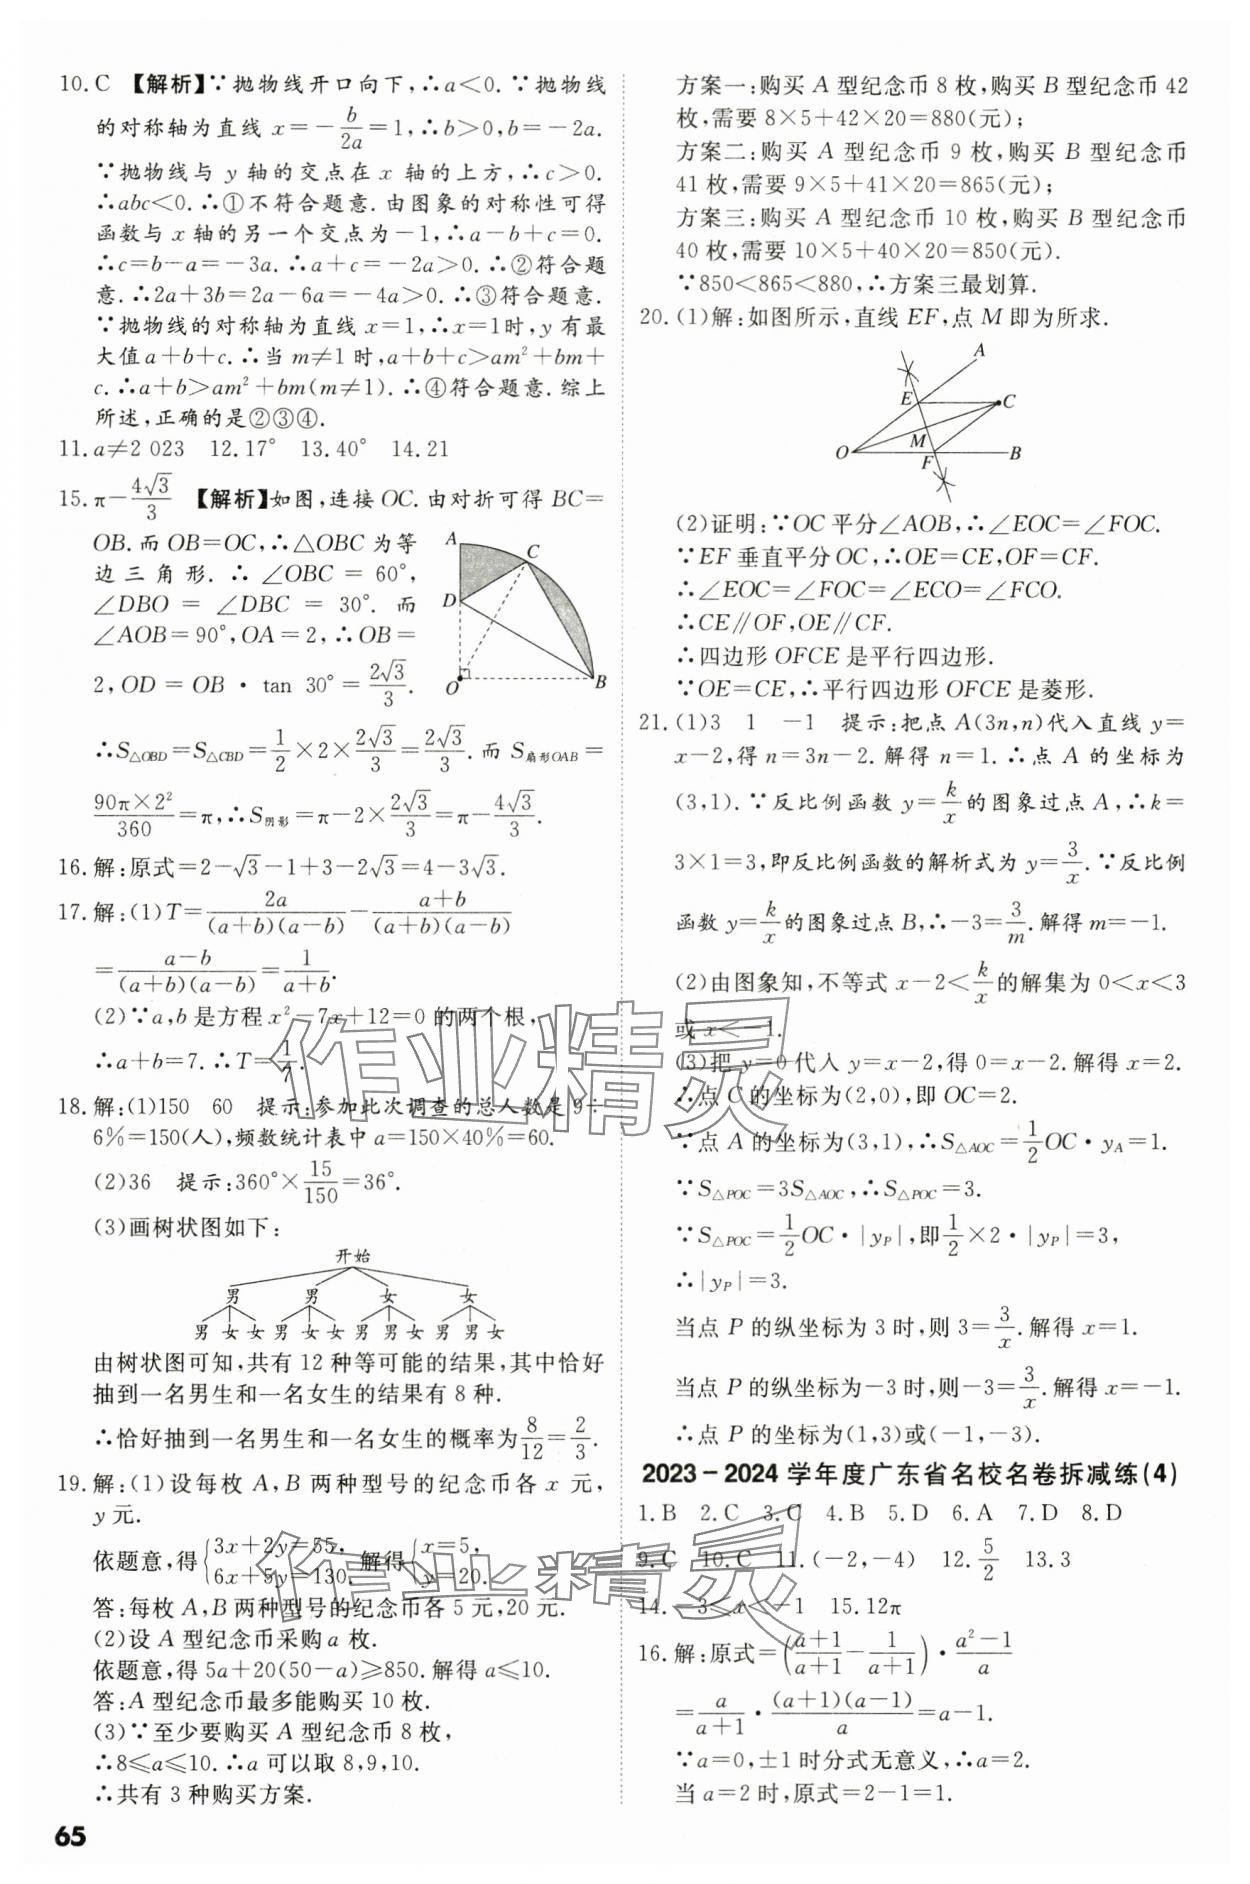 10.C 【解析】∵抛物线开口向下,∴a<0.∵抛物线
的对称轴为直线 x=-b/2a=1,∴b>0,b=-2a.
∵抛物线与 y 轴的交点在 x 轴的上方,∴c>0.
∴abc<0.∴①不符合题意.由图象的对称性可得
函数与 x 轴的另一个交点为-1,∴a-b+c=0.
∴c=b-a=-3a.∴a+c=-2a>0.∴②符合题
意.∴2a+3b=2a-6a=-4a>0.∴③符合题意.
∵抛物线的对称轴为直线 x=1,∴x=1时,y 有最
大值 a+b+c.∴当 m≠1 时,a+b+c>am²+bm+
c.∴a+b>am²+bm(m≠1).∴④符合题意.综上
所述,正确的是②③④.
11.a≠2 023 12.17° 13.40° 14.21
15.π-4√3/3 【解析】如图,连接 OC.由对折可得 BC=
OB.而 OB=OC,∴△OBC 为等
边三角形.∴∠OBC=60°,
∠DBO=∠DBC=30°.而
∠AOB=90°,OA=2,∴OB=
2,OD=OB·tan 30°=2√3/3.
A
C
D
O
B
∴S△OBD=S△CBD=1/2×2×2√3/3=2√3/3.而 S扇形OAB=
90π×2²/360=π,∴S阴影=π-2×2√3/3=π-4√3/3.
16.解:原式=2-√3-1+3-2√3=4-3√3.
17.解:(1)T=2a/(a+b)(a-b)-a+b/(a+b)(a-b)
=a-b/(a+b)(a-b)=1/a+b.
(2)∵a,b 是方程 x²-7x+12=0 的两个根,
∴a+b=7.∴T=1/7.
18.解:(1)150 60 提示:参加此次调查的总人数是 9÷
6%=150(人),频数统计表中 a=150×40%=60.
(2)36 提示:360°×15/150=36°.
(3)画树状图如下:
开始
男 男 女 女
男 女 女 男 女 女 男 男 女 男 男 女
由树状图可知,共有 12 种等可能的结果,其中恰好
抽到一名男生和一名女生的结果有 8 种.
∴恰好抽到一名男生和一名女生的概率为8/12=2/3.
19.解:(1)设每枚 A,B 两种型号的纪念币各 x 元,
y 元.
依题意,得{3x+2y=55, 6x+5y=130. 解得{x=5, y=20.
答:每枚 A,B 两种型号的纪念币各 5 元,20 元.
(2)设 A 型纪念币采购 a 枚.
依题意,得 5a+20(50-a)≥850.解得 a≤10.
答:A 型纪念币最多能购买 10 枚.
(3)∵至少要购买 A 型纪念币 8 枚,
∴8≤a≤10.∴a 可以取 8,9,10.
∴共有 3 种购买方案.
65
方案一:购买 A 型纪念币 8 枚,购买 B 型纪念币 42
枚,需要 8×5+42×20=880(元);
方案二:购买 A 型纪念币 9 枚,购买 B 型纪念币
41 枚,需要 9×5+41×20=865(元);
方案三:购买 A 型纪念币 10 枚,购买 B 型纪念币
40 枚,需要 10×5+40×20=850(元).
∵850<865<880,∴方案三最划算.
20.(1)解:如图所示,直线 EF,点 M 即为所求.
A
E
C
M
O
F
B
(2)证明:∵OC 平分∠AOB,∴∠EOC=∠FOC.
∵EF 垂直平分 OC,∴OE=CE,OF=CF.
∴∠EOC=∠FOC=∠ECO=∠FCO.
∴CE∥OF,OE∥CF.
∴四边形 OFCE 是平行四边形.
∵OE=CE,∴平行四边形 OFCE 是菱形.
21.(1)3 1 -1 提示:把点 A(3n,n)代入直线 y=
x-2,得 n=3n-2.解得 n=1.∴点 A 的坐标为
(3,1).∵反比例函数 y=k/x的图象过点 A,∴k=
3×1=3,即反比例函数的解析式为 y=3/x.∵反比例
函数 y=k/x的图象过点 B,∴-3=3/m.解得 m=-1.
(2)由图象知,不等式 x-2<k/x的解集为 0<x<3
或 x<-1.
(3)把 y=0 代入 y=x-2,得 0=x-2.解得 x=2.
∴点 C 的坐标为(2,0),即 OC=2.
∵点 A 的坐标为(3,1),∴S△AOC=1/2OC·yA=1.
∵S△POC=3S△AOC,∴S△POC=3.
∵S△POC=1/2OC·|yP|,即1/2×2·|yP|=3,
∴|yP|=3.
当点 P 的纵坐标为 3 时,则 3=3/x.解得 x=1.
当点 P 的纵坐标为-3 时,则-3=3/x.解得 x=-1.
∴点 P 的坐标为(1,3)或(-1,-3).
2023-2024 学年度广东省名校名卷拆减练(4)
1.B 2.C 3.C 4.B 5.D 6.A 7.D 8.D
9.C 10.C 11.(-2,-4) 12.5/2 13.3
14.-3<x<-1 15.12π
16.解:原式=(a+1/a+1-1/a+1)·a²-1/a
=a/a+1·(a+1)(a-1)/a=a-1.
∵a=0,±1 时分式无意义,∴a=2.
当 a=2 时,原式=2-1=1.
作业精灵
作业精灵